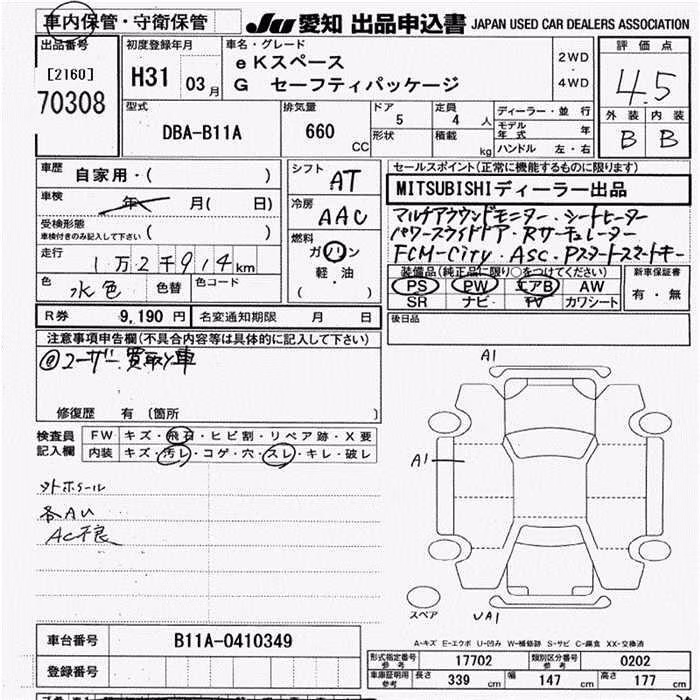 車内保管・守衛保管 JU 愛知 出品申込書 JAPAN USED CAR DEALERS ASSOCIATION
出品番号 初度登録年月 車名・グレード 評価点
[2160] H31 03月 eKスペース 2WD 4.5
70308 G セーフティパッケージ 4WD
型式 排気量 ドア 定員 ディーラー・並行 外装 内装
DBA-B11A 660 CC 5 4 人 モデル年式 年 B B
形状 積載 kg ハンドル 左・右
車歴 自家用・( ) シフト AT セールスポイント(正常に機能するものに限ります)
車検 年 月( 日) 冷房 AAC MITSUBISHIディーラー出品
受検形態 車検付きのみ記入して下さい ( ) マルチアラウンドモニター・シートヒーター
走行 1万2千914km 燃料 ガソリン パワースライドドア・Rサーキュレーター
軽・油 FCM-City・ASC・
( )
色 水色 色替 色コード 装備品(純正品に限り○をつけてください) 新車保証書
PS PW エアB AW 有・無
SR ナビ TV カワシート
R券 9,190 円 名変通知期限 月 日 後日品
注意事項申告欄(不具合内容等は具体的に記入して下さい)
@ユーザー買取り車
修復歴 有 〔箇所 〕
検査員記入欄 FW キズ・飛石・ヒビ割・リペア跡・X要
内装 キズ・汚レ・コゲ・穴・スレ・キレ・破レ
A1
A1
各AU
AC不良
スペア UA1
A-キズ E-エクボ U-凹み W-補修跡 S-サビ C-腐食 XX-交換済
車台番号 B11A-0410349
登録番号
形式指定番号 参考 17702 類別区分番号 参考 0202
車庫証明用 参考 長さ 339 cm 幅 147 cm 高さ 177 cm